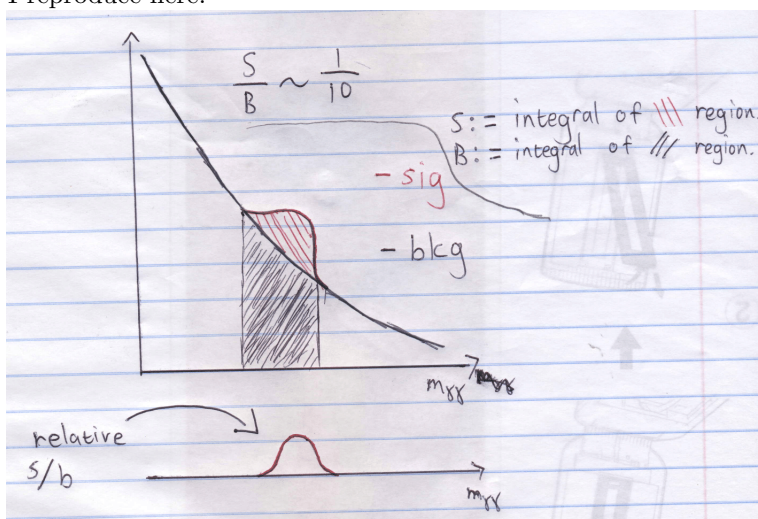 I reproduce here.
S/B ~ 1/10
S:= integral of ||| region.
B:= integral of /// region.
- sig
- bkg
mγγ
relative
s/b
mγγ